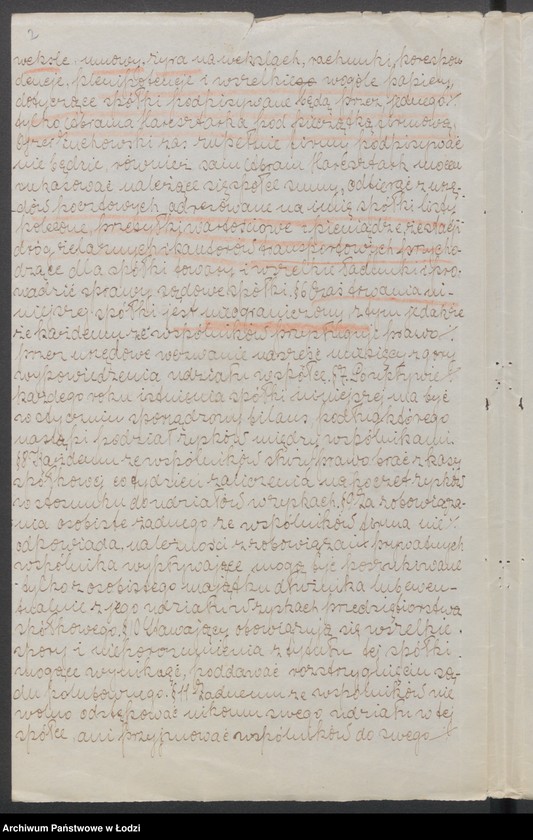 2
weksle, umowy, żyra na wekslach, rachunki, korespon
dencje, plenipotencje i wszelkiego wogóle papiery,
dotyczące spółki podpisywane będą przez jednego
tylko Abrama Karesztarka pod pieczątką firmową,
Żuchowski zaś zupełnie firmy podpisywać
nie będzie, również sam Abram Karesztark może
inkasować należące się spółce sumy, odbierać z urzę-
dów pocztowych, adresowane na imię spółki listy
polecone, przesyłki wartościowe i pieniądze, ze stacji
dróg żelaznych i kantorów transportowych przycho-
dzące dla spółki towary i wszelkie ładunki i pro-
wadzić sprawy sądowe spółki. § 6 Czas trwania ni-
niejszej spółki jest nieograniczony, z tym jednakże
że każdemu ze wspólników przysługuje prawo
przez urzędowe wezwanie na sześć miesięcy z góry
wypowiedzenia udziału w spółce. § 7. Co
każdego roku istnienia spółki niniejszej ma być
w styczniu sporządzony bilans, podług którego
nastąpi podział zysków między wspólnikami.
§ 8 Każdemu ze wspólników służy prawo brać z kasy
spółkowej co tydzień zaliczenia na poczet zysków
w stosunku do udziałów w zyskach. § 9. Za zobowiąza-
nia osobiste żadnego ze wspólników firma nie
odpowiada, należności z zobowiązań prywatnych
wspólnika wypływające mogą być poszukiwane
tylko z osobistego majątku dłużnika lub ewen-
tualnie z jego udziału w zyskach przedsiębiorstwa
spółkowego. § 10 Stawający obowiązują się wszelkie
spory i nieporozumienia z tytułu tej spółki
mogące wyniknąć, poddawać rozstrzygnięciu są-
du polubownego. § 11 Żadnemu ze wspólników nie
wolno odstępować nikomu swego udziału w tej
spółce, ani przyjmować wspólników do swego
Archiwum Państwowe w Łodzi